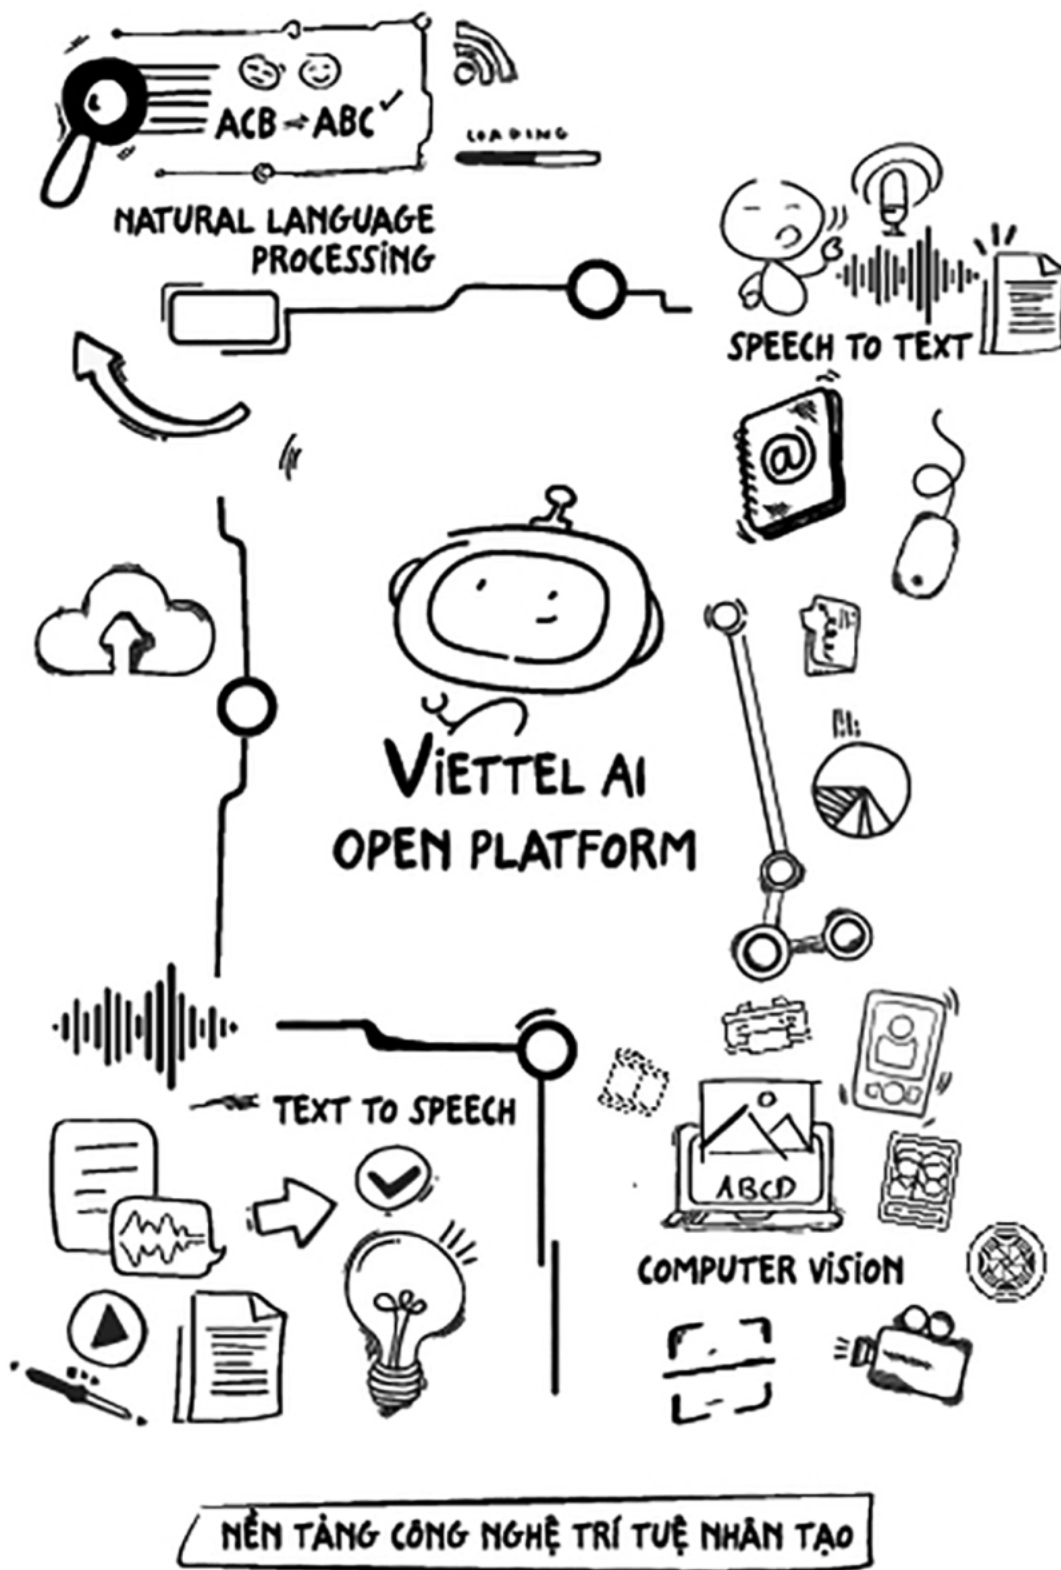 ACB → ABC ✓
LOADING
NATURAL LANGUAGE
PROCESSING
SPEECH TO TEXT
@
VIETTEL AI
OPEN PLATFORM
TEXT TO SPEECH
ABCD
COMPUTER VISION
NỀN TẢNG CÔNG NGHỆ TRÍ TUỆ NHÂN TẠO